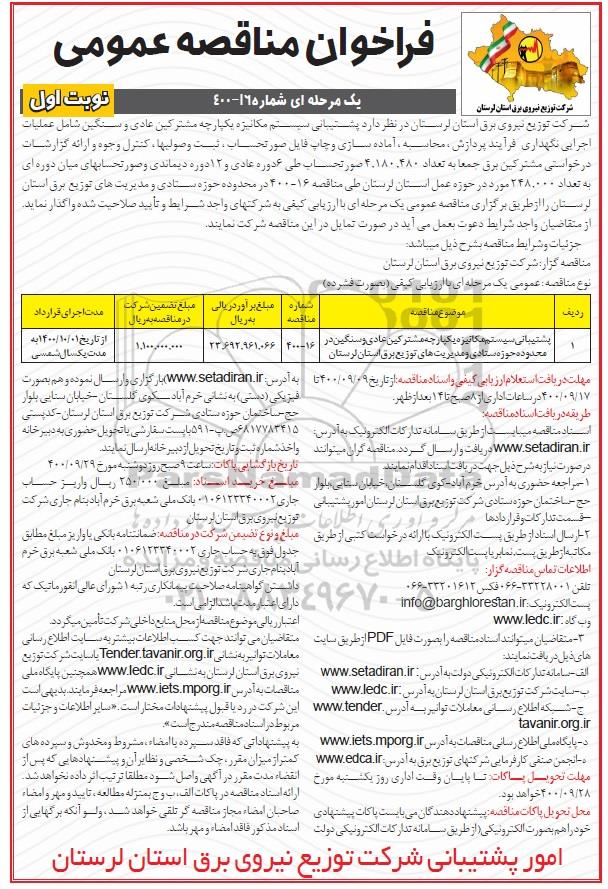 فراخوان مناقصه عمومی
شرکت توزیع نیروی برق استان لرستان
یک مرحله ای شماره ۱۶-۴۰۰
نوبت اول
شرکت توزیع نیروی برق استان لرستان در نظر دارد پشتیبانی سیستم مکانیزه یکپارچه مشترکین عادی و سنگین شامل عملیات
اجرایی نگهداری فرآیند پردازش ، محاسبه ، آماده سازی و چاپ فایل صورتحساب ، ثبت وصولیها ، کنترل وجوه و ارائه گزارشات
درخواستی مشترکین برق جمعا به تعداد ۴،۱۸۰،۴۸۰ صورتحساب طی ۶ دوره عادی و ۱۲ دوره دیماندی وصورتحسابهای میان دوره ای
به تعداد ۲۴۸،۰۰۰ مورد در حوزه عمل استان لرستان طی مناقصه ۱۶-۴۰۰ در محدوده حوزه ستادی و مدیریت های توزیع برق استان
لرستان را ازطریق برگزاری مناقصه عمومی یک مرحله ای با ارزیابی کیفی به شرکتهای واجد شرایط و تأیید صلاحیت شده واگذار نماید.
از متقاضیان واجد شرایط دعوت بعمل می آید در صورت تمایل در این مناقصه شرکت نمایند.
جزئیات وشرایط مناقصه بشرح ذیل میباشد:
مناقصه گزار: شرکت توزیع نیروی برق استان لرستان
نوع مناقصه: عمومی یک مرحله ای با ارزیابی کیفی (بصورت فشرده)
ردیف موضوع مناقصه شماره مناقصه مبلغ برآورد ریالی به ریال مبلغ تضمین شرکت در مناقصه به ریال مدت اجرای قرارداد
۱ پشتیبانی سیستم مکانیزه یکپارچه مشترکین عادی و سنگین در محدوده حوزه ستادی و مدیریت های توزیع برق استان لرستان ۱۶-۴۰۰ ۲۳،۶۹۲،۹۶۱،۰۶۶ ۱،۱۰۰،۰۰۰،۰۰۰ از تاریخ ۱۴۰۰/۱۰/۰۱ به مدت یکسال شمسی
مهلت دریافت استعلام ارزیابی کیفی و اسناد مناقصه: از تاریخ ۴۰۰/۰۹/۰۹ تا
۴۰۰/۰۹/۱۷ در ساعات اداری از ۸ صبح تا ۱۴ بعد از ظهر.
طریقه دریافت اسناد مناقصه:
اسناد مناقصه میبایست از طریق سامانه تدارکات الکترونیک به آدرس:
www.setadiran.ir دریافت و ارسال گردد. مناقصه گران میتوانند
در صورت نیاز به شرح ذیل جهت دریافت اسناد اقدام نمایند.
۱-مراجعه حضوری به آدرس خرم آباد-کوی گلستان-خیابان سنایی بلوار
حج-ساختمان حوزه ستادی شرکت توزیع برق استان لرستان امور پشتیبانی
-قسمت تدارکات و قراردادها
۲-ارسال اسناد از طریق پست الکترونیک با ارائه درخواست کتبی از طریق
مکاتبه از طریق پست، نمابر یا پست الکترونیک
اطلاعات تماس مناقصه گزار:
تلفن ۳۳۲۲۸۰۰۱-۰۶۶ فکس ۳۳۲۰۱۶۱۲-۰۶۶
پست الکترونیک: info@barghlorestan.ir
وب گاه: www.ledc.ir
۳-متقاضیان میتوانند اسناد مناقصه را بصورت فایل PDF از طریق سایت
های ذیل دریافت نمایند:
الف-سامانه تدارکات الکترونیکی دولت به آدرس: www.setadiran.ir
ب-سایت شرکت توزیع برق استان لرستان به آدرس: www.ledc.ir
ج-شبکه اطلاع رسانی معاملات توانیر به آدرس. www.tender.
tavanir.org.ir
د-پایگاه ملی اطلاع رسانی مناقصات به آدرس www.iets.mporg.ir
ه-انجمن صنفی کارفرمایی شرکتهای توزیع برق به آدرس: www.edca.ir
مهلت تحویل پاکات: تا پایان وقت اداری روز یکشنبه مورخ
۴۰۰/۰۹/۲۸ خواهد بود.
محل تحویل پاکات مناقصه: پیشنهاد دهندگان می بایست پاکات پیشنهادی
خود را هم بصورت الکترونیکی (از طریق سامانه تدارکات الکترونیکی دولت
به آدرس: www.setadiran.ir) بارگزاری وارسال نموده و هم بصورت
فیزیکی (دستی) به نشانی خرم آباد-کوی گلستان-خیابان سنایی بلوار
حج-ساختمان حوزه ستادی شرکت توزیع برق استان لرستان-کدپستی
۶۸۱۷۷۸۳۴۱۵ ص.پ-۵۹۱ با پست سفارشی یا تحویل حضوری به دبیرخانه
واخذ شماره ثبت و تاریخ تحویل از دبیرخانه ارسال نمایند.
تاریخ بازگشایی پاکات: ساعت ۹ صبح روز دوشنبه مورخ ۴۰۰/۰۹/۲۹
مبلغ خرید اسناد: مبلغ ۲۵۰/۰۰۰ ریال واریز حساب
جاری ۰۱۰۶۱۲۳۳۴۰۰۰۲ بانک ملی شعبه برق خرم آباد بنام جاری شرکت
توزیع نیروی برق استان لرستان
مبلغ و نوع تضمین شرکت در مناقصه: ضمانتنامه بانکی یا واریز مبلغ مطابق
جدول فوق به حساب جاری ۰۱۰۶۱۲۳۳۴۰۰۰۲ بانک ملی شعبه برق خرم
آباد بنام جاری شرکت توزیع نیروی برق استان لرستان
داشتن گواهینامه صلاحیت پیمانکاری رتبه ۱ شورای عالی انفورماتیک که
دارای اعتبار مدت باشد الزامی است.
اعتبار ریالی موضوع مناقصه از محل منابع داخلی شرکت تأمین میگردد.
متقاضیان می توانند جهت کسب اطلاعات بیشتر به سایت اطلاع رسانی
معاملات توانیر به نشانی Tender.tavanir.org.ir یا سایت شرکت توزیع
نیروی برق استان لرستان به نشانی www.ledc.ir همچنین پایگاه ملی
مناقصات به آدرس www.iets.mporg.ir مراجعه فرمایند. بدیهی است
این شرکت در رد یا قبول پیشنهادات مختار است. «سایر اطلاعات و جزئیات
مربوط در اسناد مناقصه مندرج است».
به پیشنهاداتی که فاقد سپرده یا امضاء ، مشروط و مخدوش و سپرده های
کمتر از میزان مقرر ، چک شخصی و نظایر آن و پیشنهادهایی که پس از
انقضاء مدت مقرر در آگهی واصل شود مطلقا ترتیب اثر داده نخواهد شد.
ارائه اسناد مناقصه در پاکات الف، ب و ج بمنزله مطالعه ، تایید و مهر و امضاء
صاحبان امضاء مجاز مناقصه گر تلقی خواهد شد ، ولو آنکه برگهایی از
اسناد مذکور فاقد امضاء و مهر باشد.
امور پشتیبانی شرکت توزیع نیروی برق استان لرستان